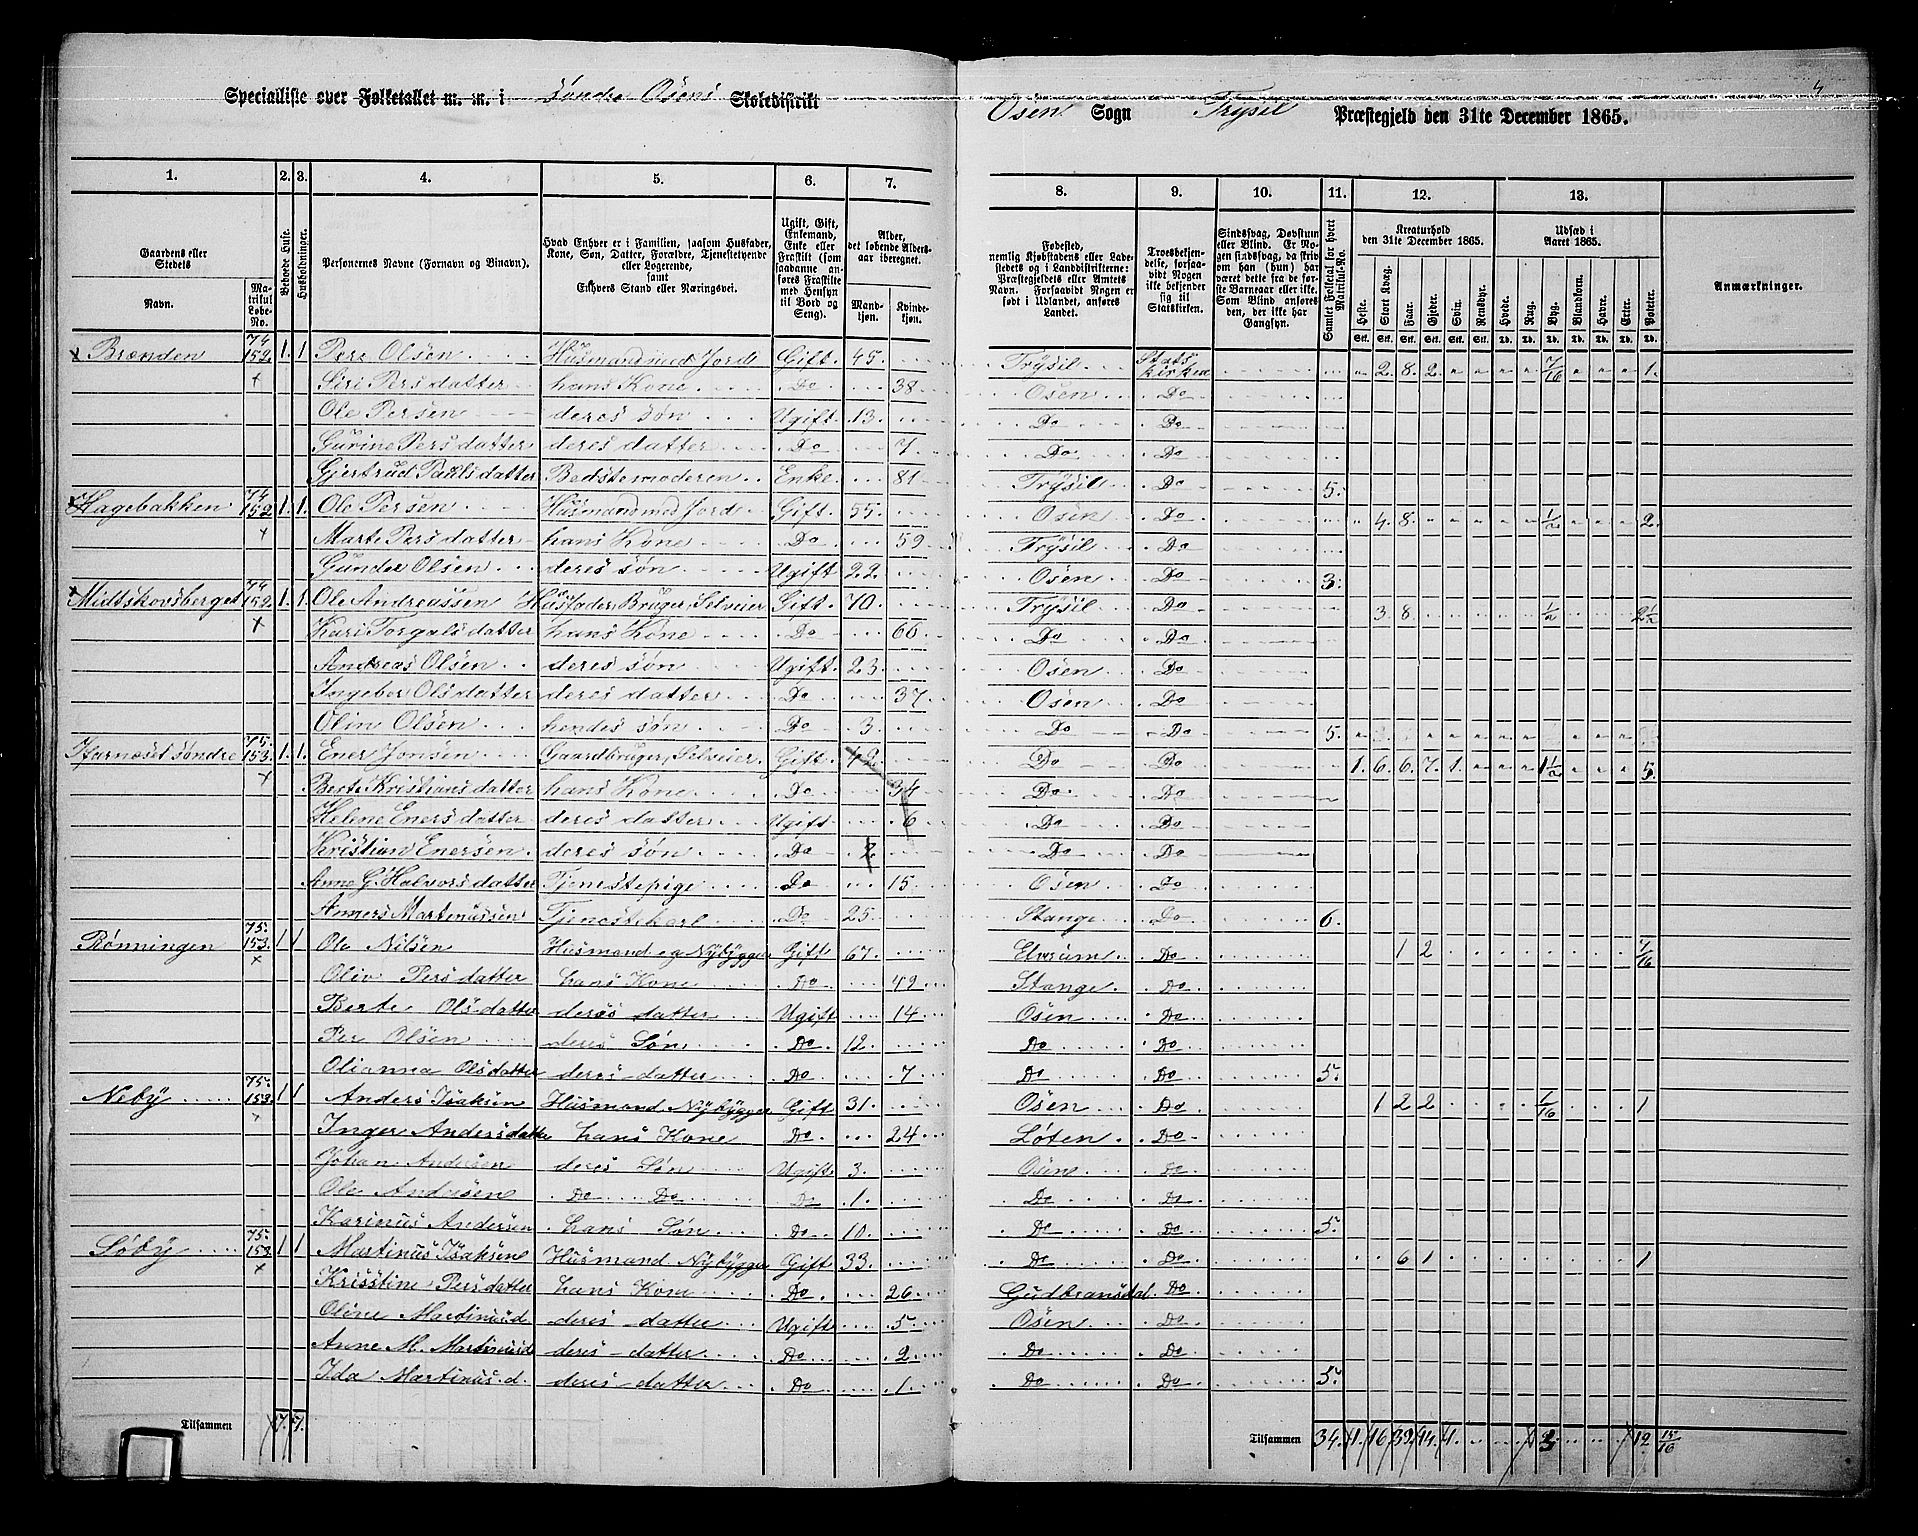 Specialliste over Folketallet m. m. i Søndre Osens Skoledistrikt Osen Sogn Trysil Præstegjeld den 31te December 1865.
1. 2. 3. 4. 5. 6. 7. 8. 9. 10. 11. 12. 13.
Gaardens eller Stedets
Navn.
Matrikul Løbe-No.
Beboede Huse.
Husholdninger.
Personernes Navne (Fornavn og Binavn).
Hvad Enhver er i Familien, saasom Husfader, Kone, Søn, Datter, Forældre, Tjenestetyende eller Logerende,
samt
Enhvers Stand eller Næringsvei.
Ugift, Gift, Enkemand, Enke eller Fraskilt (som saadanne anføres Fraskilte med Hensyn til Bord og Seng).
Alder, det løbende Alders-aar iberegnet.
Mandkjøn.
Kvindekjøn.
Fødested,
nemlig Kjøbstadens eller Ladestedets og i Landdistrikterne: Præstegjeldets eller Amtets Navn. Forsaavidt Nogen er født i Udlandet, anføres Landet.
Troesbekjendelse, forsaavidt Nogen ikke bekjender sig til Statskirken.
Sindssvag, Døvstum eller Blind. Er Nogen sindssvag, da skriv om han (hun) har været dette fra de første Barneaar eller ikke. Som Blind anføres den, der ikke har Gangsyn.
Samlet Folketal for hvert Matrikul-No.
Kreaturhold den 31te December 1865.
Heste. Stort Kvæg. Faar. Gjeder. Svin. Rensdyr.
Udsæd i Aaret 1865.
Hvede. Rug. Byg. Blandkorn. Havre. Erter. Poteter.
Anmærkninger.
Brænden 74 152 1. 1 Per Olsen Husmand med Jord Gift 45. Trysil Statskirken 2. 8. 2. 7/16 1.
Siri Persdatter hans Kone Do 38 Osen Do
Ole Persen deres søn Ugift 13. Do Do
Gurine Persdatter deres datter Do 7 Do Do
Gjertrud Paulsdatter Bedstemoderen Enke 81 Trysil Do 5.
Hagebakken 74 152 1. 1. Ole Persen Husmand med Jord Gift 55. Osen Do 4. 8. 1/2 2.
Marte Persdatter hans Kone Do 59 Trysil Do
Gunder Olsen deres søn Ugift 22. Osen Do 3.
Midtskovsberget 74 152 1. 1. Ole Andreassen Husfader, Bruger, Selveier Gift 70. Trysil Do 3. 8. 1/2 2 1/2
Kari Torgalsdatter hans Kone Do 66 Do Do
Andreas Olsen deres søn Ugift 23. Osen Do
Ingebor Olsdatter deres datter Do 37 Osen Do
Olin Olsen hendes søn Do 3 Do Do 5.
søndre 75. 153. 1. 1. Ener Jonsen Gaardbruger, Selveier Gift 42. Do Do 1. 6. 6. 7. 1. 1 1/2 5.
Berte Kristiansdatter hans Kone Do 34 Do Do
Helene Enersdatter deres datter Ugift 6 Do Do
Kristian Enersen deres søn Do 2 Do Do
Anne G. Halvorsdatter Tjenestepige Do 15. Osen Do
Anners Martinussen Tjenestekarl Do 25 Stange Do 6.
Rønningen 75. 153. 1 1 Ole Nilsen Husmand og Nybygger Gift 67. Elvrum Do 1 2 7/16
Oliv Persdatter hans Kone Do 49 Stange Do
Berte Olsdatter deres datter Ugift 14 Osen Do
Per Olsen deres Søn Do 12. Do Do
Olianna Olsdatter deres datter Do 7 Do Do 5.
Neby 75. 153. 1 1 Anders Isaksen Husmand Nybygger Gift 31. Osen Do 1 2 2 1/16 1
Inger Andersdatter hans Kone Do 24 Løten Do
Johan Andersen deres Søn Ugift 3. Osen Do
Ole Andersen Do Do Do 1. Do Do
Karinus Andersen hans Søn Do 10. Do Do 5.
Søby 75. 153 1 1 Martinus Isaksen Husmand Nybygger Gift 33. Do Do 6 1 1
Krisstine Persdatter hans Kone Do 26 Gudbransdal Do
Oline Martinusd deres datter Ugift 5. Osen Do
Anne M. Martinusd deres datter Do 2 Do Do
Ida Martinus.d. deres datter Do 1. Do Do 5.
Tilsammen 7. 7. Tilsammen 34. 1. 16 39 14. 1. 12 15/16